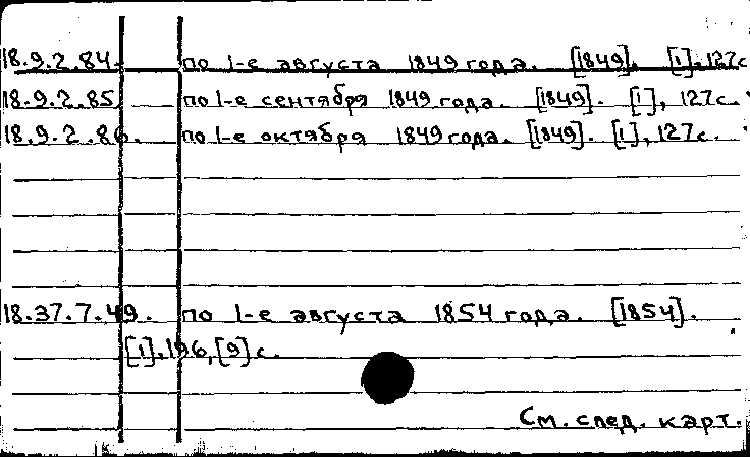 18.9.2.84. по 1-е августа 1849 года. [1849]. [1].127с
18.9.2.85. по 1-е сентября 1849 года. [1849]. [1], 127с.
18.9.2.86. по 1-е октября 1849 года. [1849]. [1], 127с.
18.37.7.49. по 1-е августа 1854 года. [1854].
[1].196,[9]с.
См. след. карт.